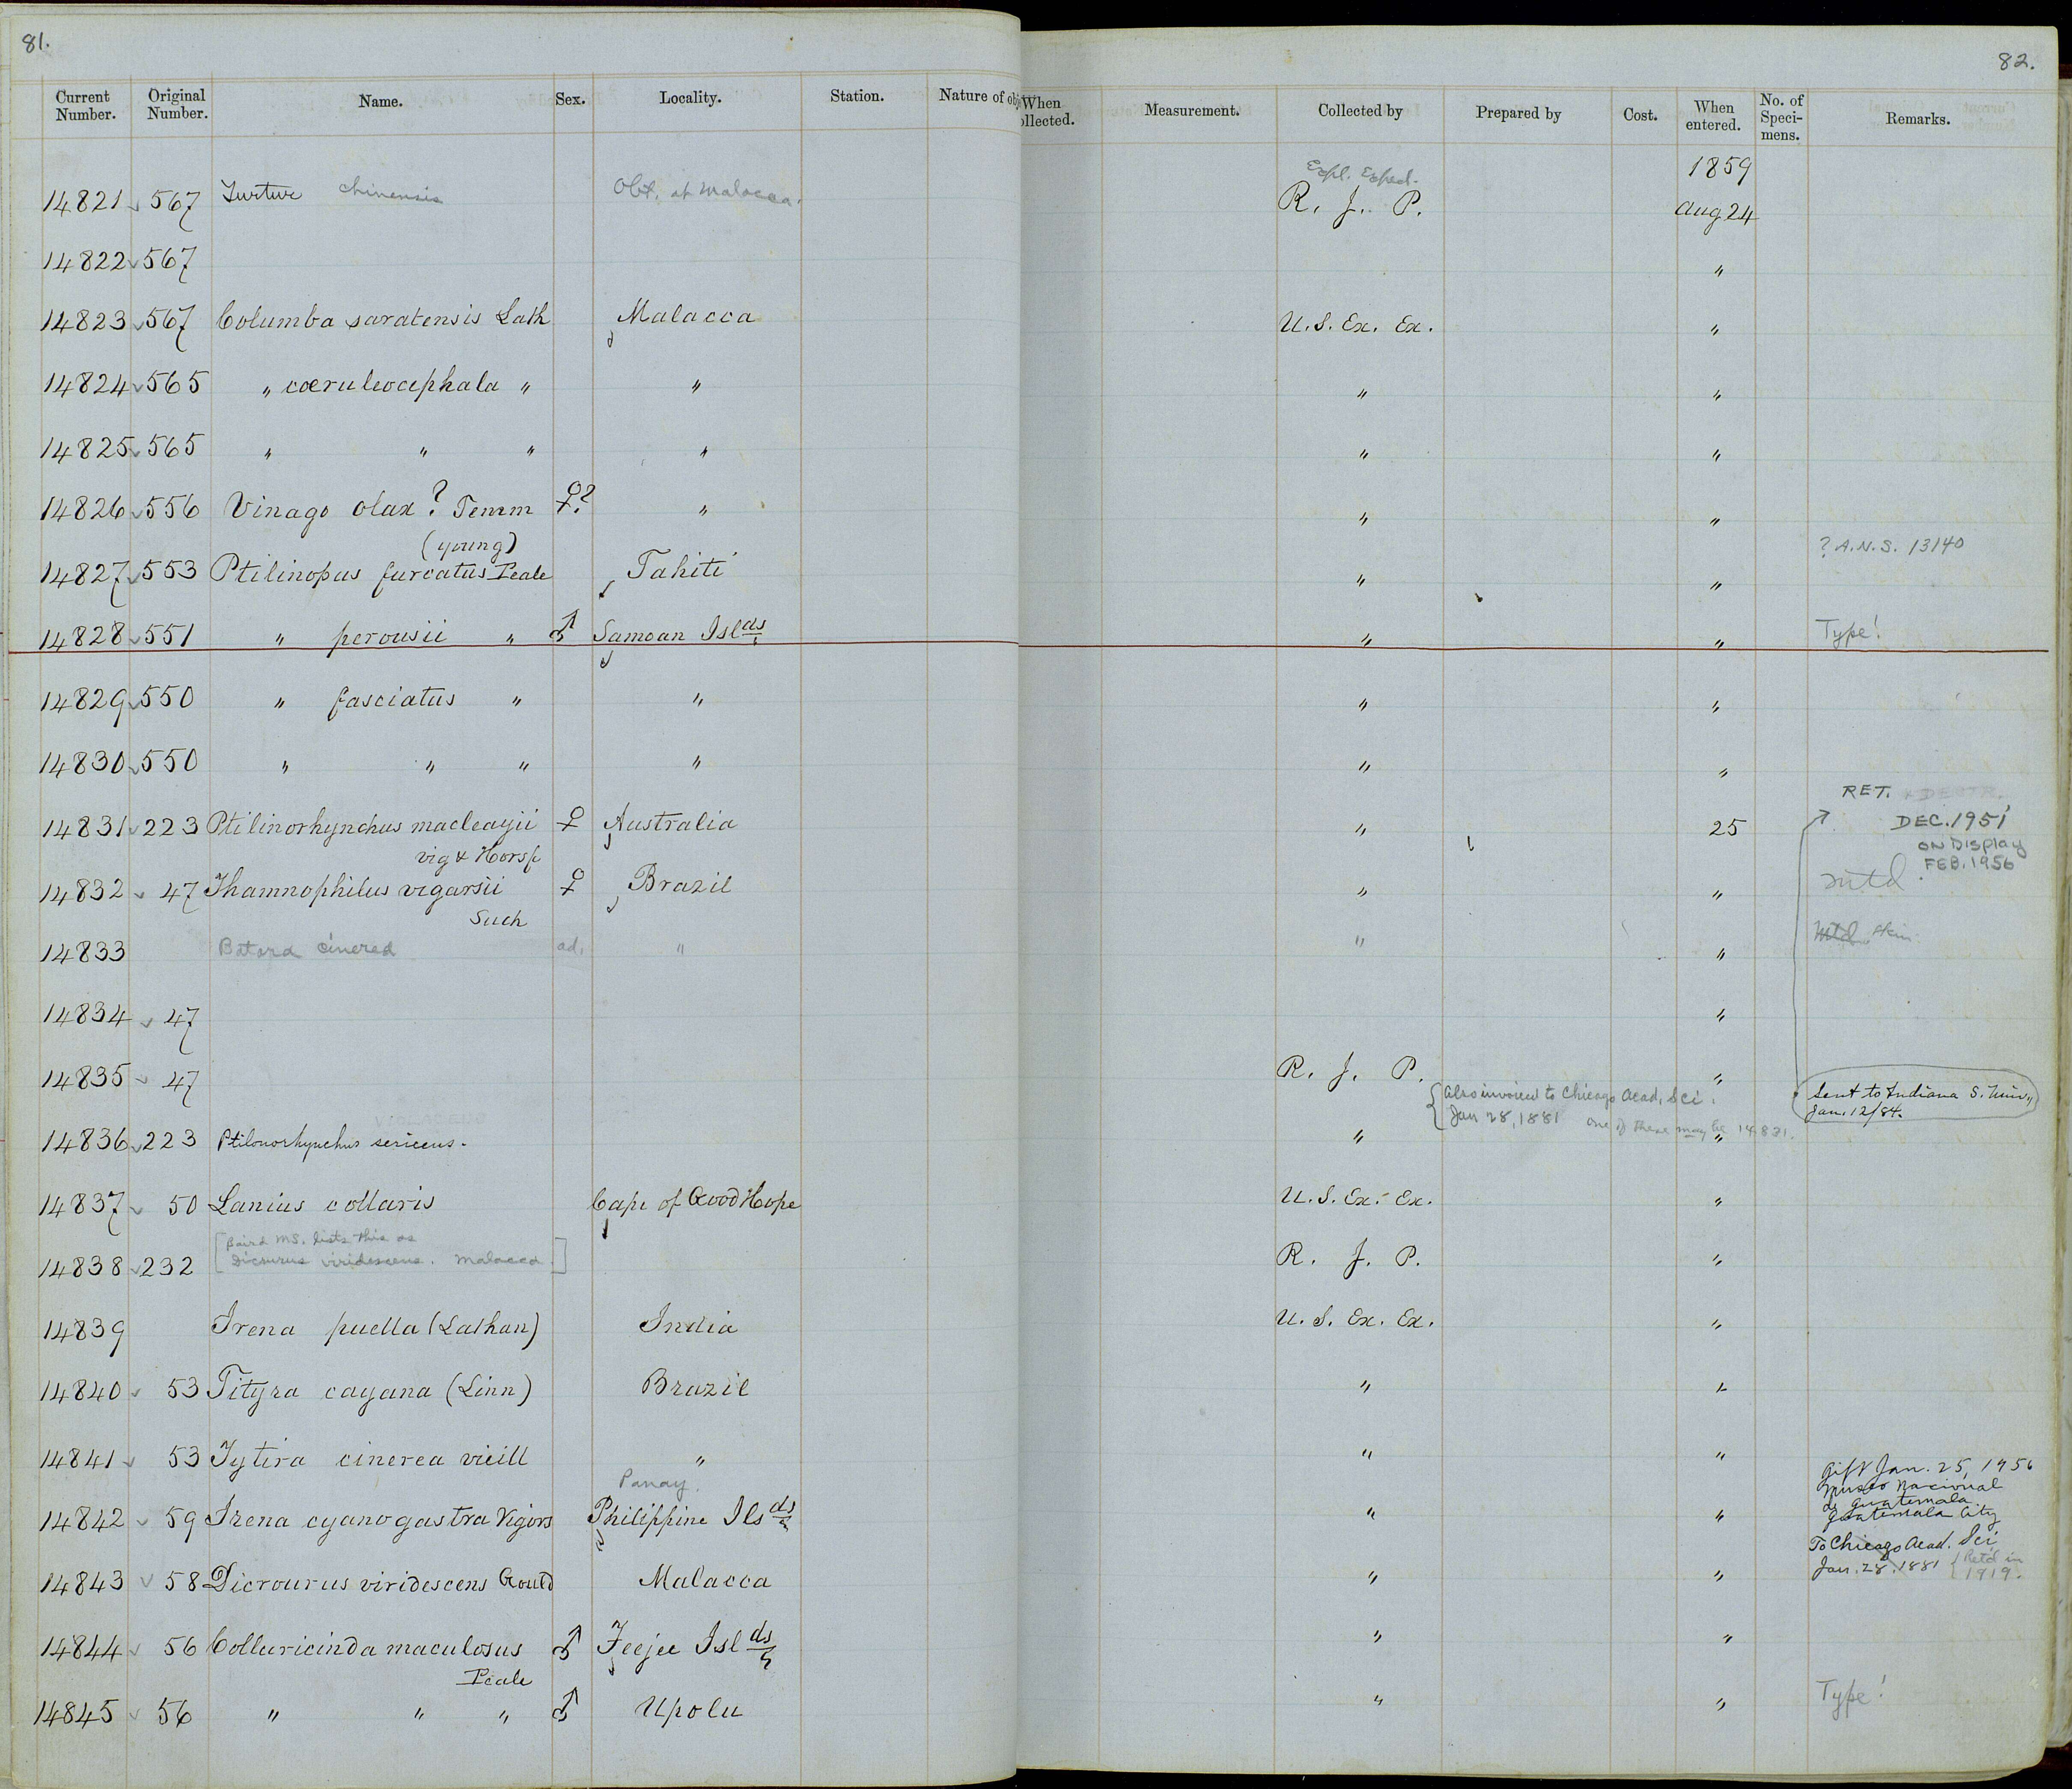 81.
82.
Current Number. Original Number. Name. Sex. Locality. Station. Nature of obj When ollected. Measurement. Collected by Prepared by Cost. When entered. No. of Speci-mens. Remarks.
Expl. Exped. 1859
14821 567 Turtur chinensis Obt. at Malacca. R. J. P. Aug 24
14822 567 "
14823 567 Columba saratensis Lath Malacca U.S. Ex. Ex. "
14824 565 " cœruleocephala " " " "
14825 565 " " " " " "
14826 556 Vinago olax? Temm ♀? " " "
(young) ? A.N.S. 13140
14827 553 Ptilinopus furcatus Peale Tahiti " "
14828 551 " perousii " ♂ Samoan Islds " " Type!
14829 550 " fasciatus " " " "
14830 550 " " " " " "
RET. & DESTR.
14831 223 Ptilinorhynchus macleayii ♀ Australia " 25 DEC. 1951
Vig & Horsf ON Display
FEB. 1956
14832 47 Thamnophilus vigarsii ♀ Brazil " " mtd.
Such
14833 Batara cinerea ad. " " " Mtd. Skin
14834 47 "
14835 47 R. J. P. "
{ Also invoiced to Chicago Acad. Sci. Sent to Indiana S. Univ.,
Jan 28, 1881 one of these may be 14,831. Jan. 12/84.
14836 223 Ptilonorhynchus sericeus. " "
14837 50 Lanius collaris Cape of Good Hope U.S. Ex. Ex. "
[Baird MS. lists this as
14838 232 Dicrurus viridescens. Malacca.] R. J. P. "
14839 Irena puella (Lathan) India U.S. Ex. Ex. "
14840 53 Tityra cayana (Linn) Brazil " "
14841 53 Tytira cinerea vieill " " "
Panay. Gift Jan. 25, 1956
Museo Nacional
de Guatemala
14842 59 Irena cyanogastra Vigors Philippine Ilsds " " Guatemala City
To Chicago Acad. Sci
14843 58 Dicrourus viridescens Gould Malacca " " Jan. 28. 1881 { Ret'd in 1919.
14844 56 Colluricinda maculosus ♂ Feejee Islds " "
Peale
14845 56 " " " ♂ Upolu " " Type!